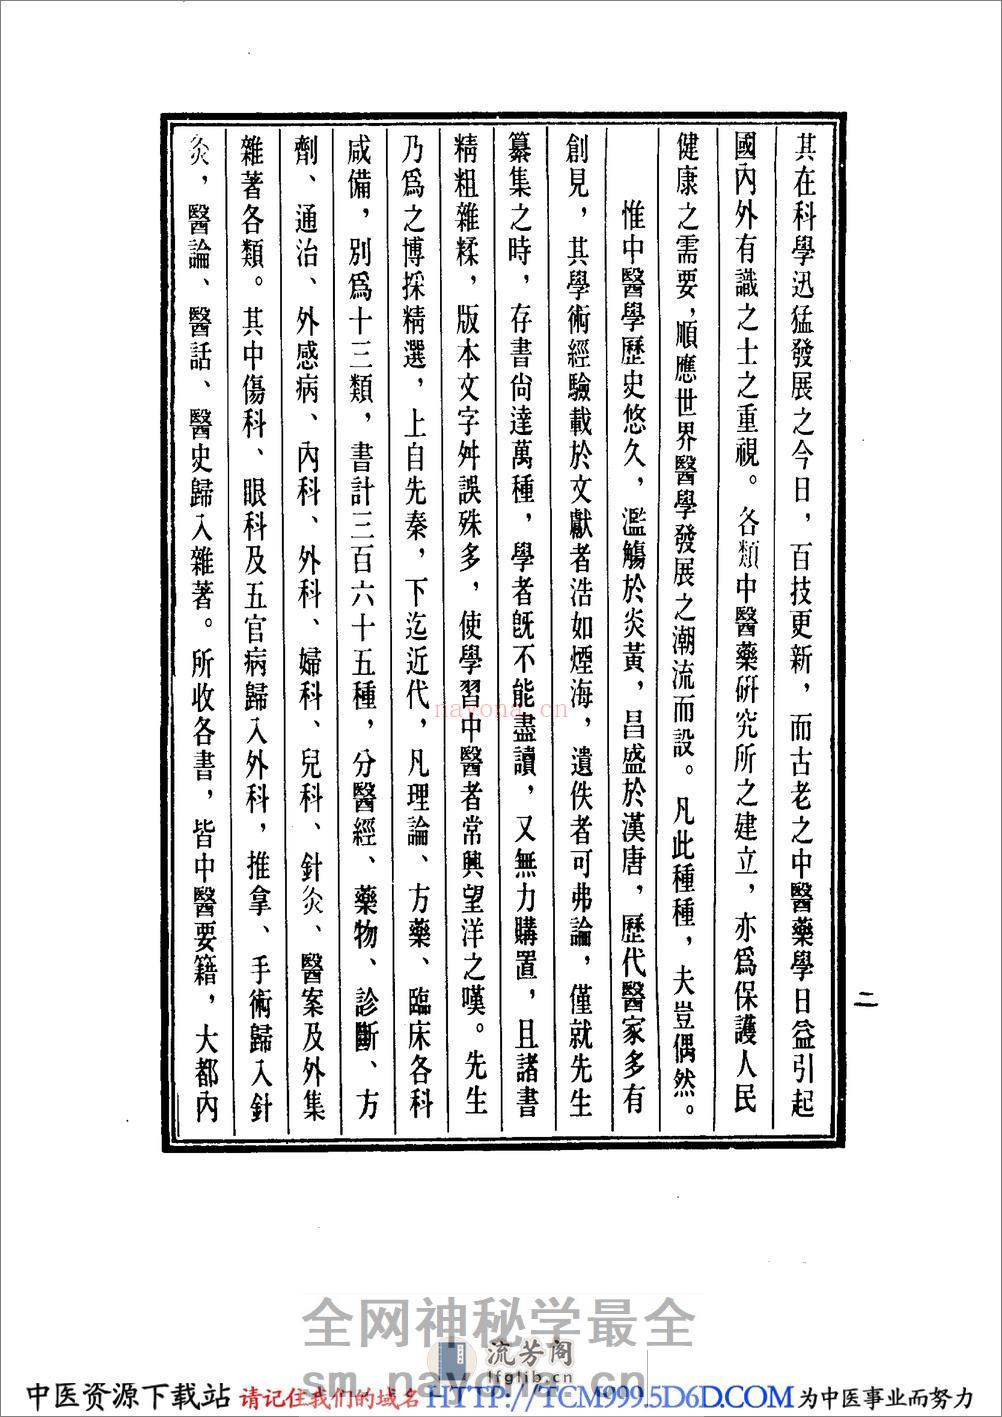 其在科學迅猛發展之今日，百技更新，而古老之中醫藥學日益引起
國內外有識之士之重視。各類中醫藥研究所之建立，亦爲保護人民
健康之需要，順應世界醫學發展之潮流而設。凡此種種，夫豈偶然。
惟中醫學歷史悠久，濫觴於炎黃，昌盛於漢唐，歷代醫家多有
創見，其學術經驗載於文獻者浩如煙海，遺佚者可弗論，僅就先生
纂集之時，存書尙達萬種，學者旣不能盡讀，又無力購置，且諸書
精粗雜糅，版本文字舛誤殊多，使學習中醫者常興望洋之嘆。先生
乃爲之博採精選，上自先秦，下迄近代，凡理論、方藥、臨床各科
咸備，別爲十三類，書計三百六十五種，分醫經、藥物、診斷、方
劑、通治、外感病、內科、外科、婦科、兒科、針灸、醫案及外集
雜著各類。其中傷科、眼科及五官病歸入外科，推拿、手術歸入針
灸，醫論、醫話、醫史歸入雜著。所收各書，皆中醫要籍，大都內
二
nayona.cn
全网神秘学最全
流芳阁
lfglib.cn
sm.nayona.cn
中医资源下载站 请记住我们的域名 HTTP://TCM999.5D6D.COM 为中医事业而努力